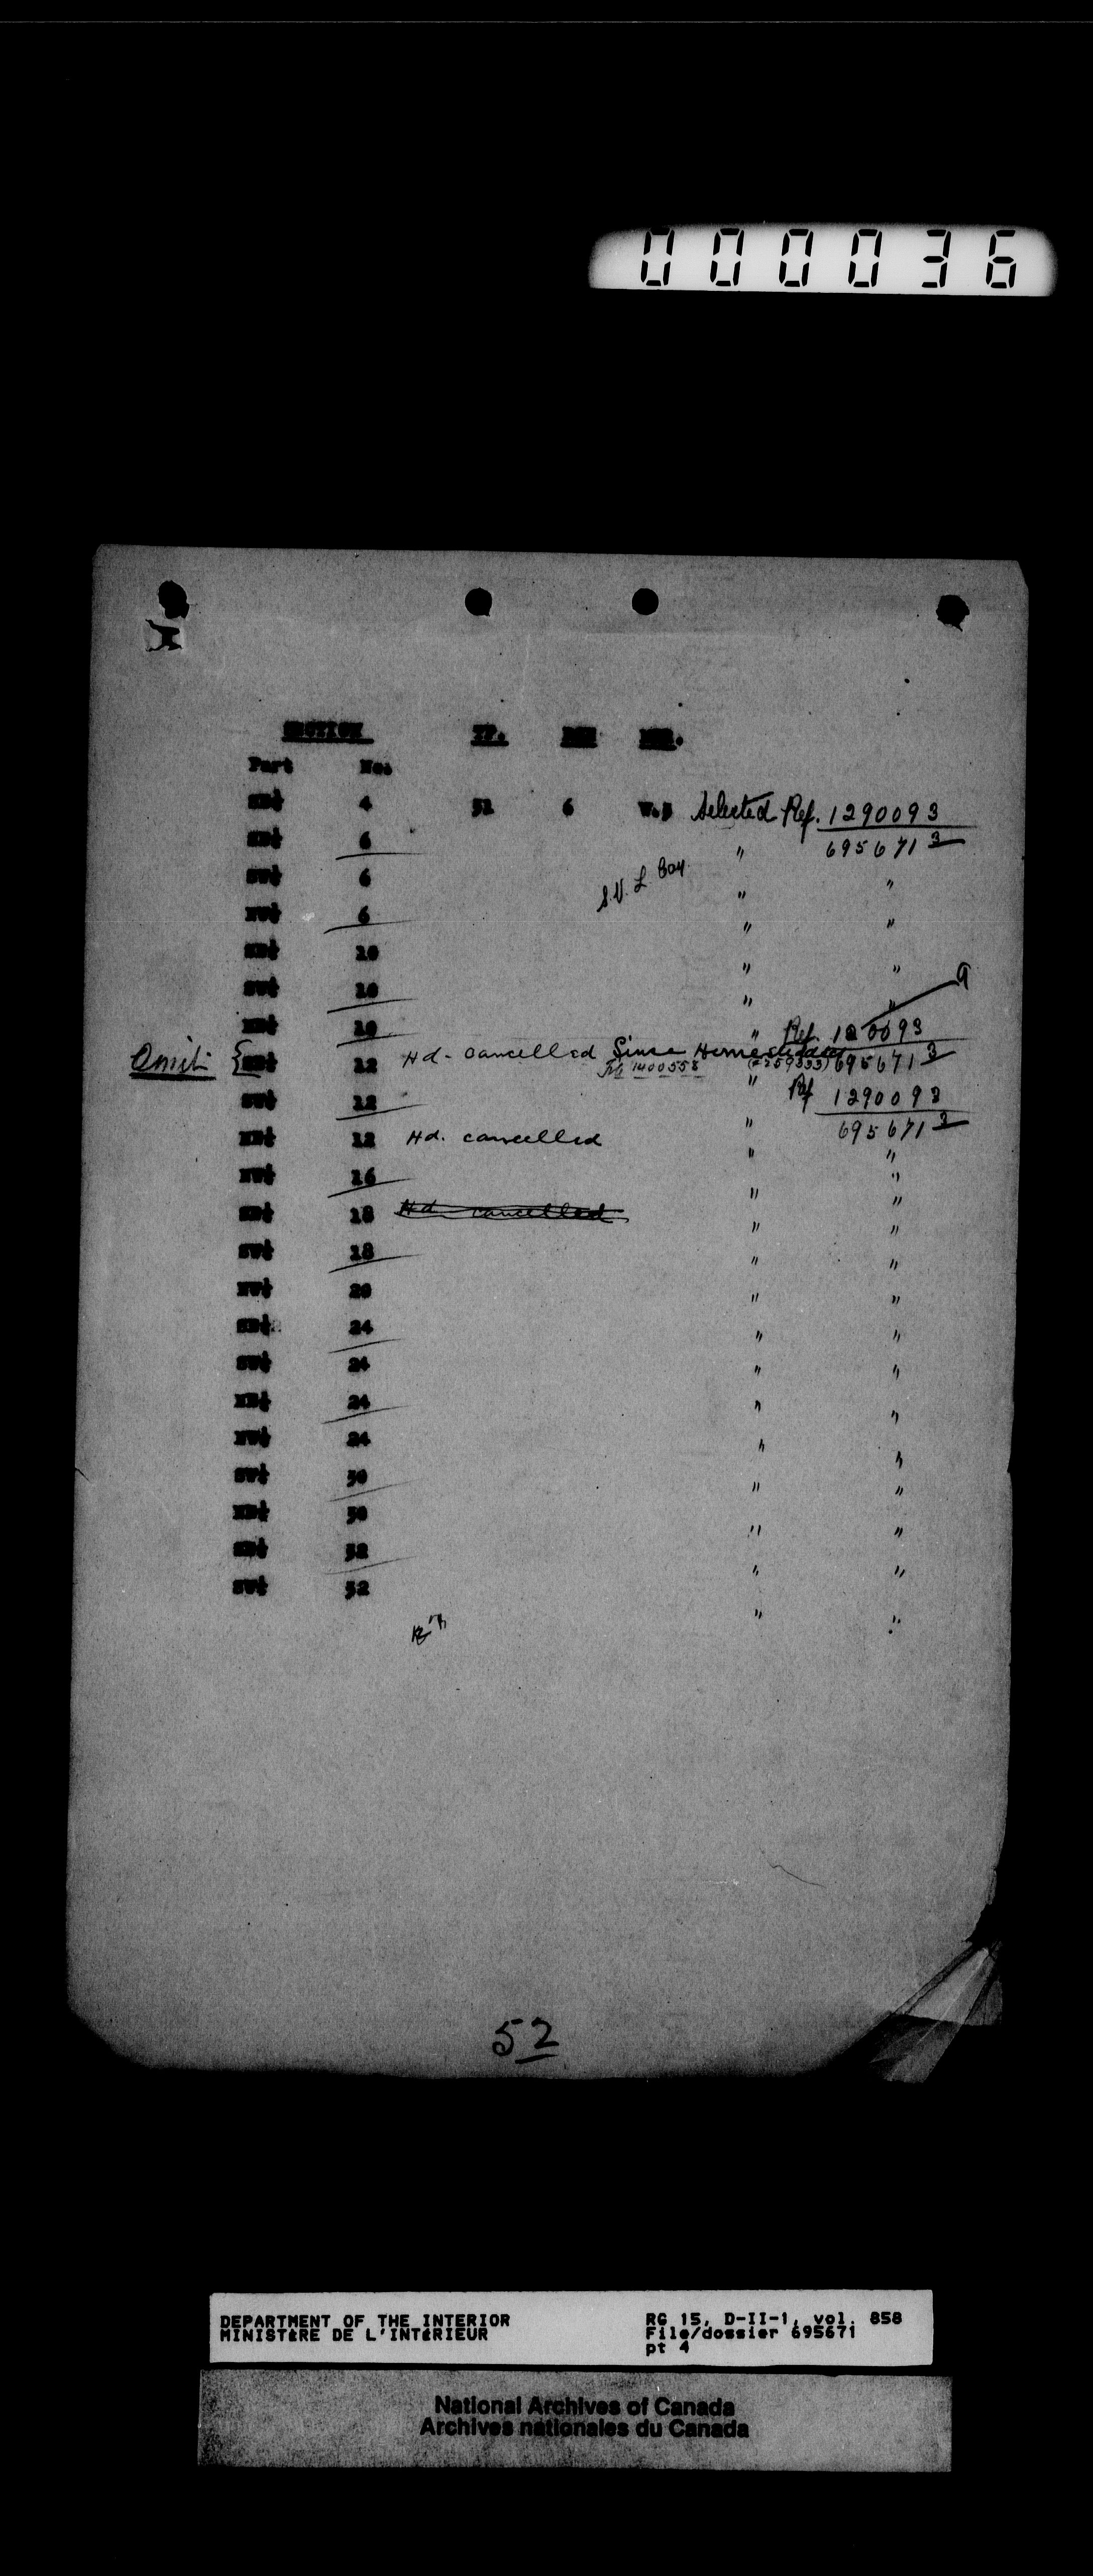 000036
SECTION TP. RGE MER.
Part No.
SE¼ 4 52 6 W.5 Selected Ref. 1290093
NE¼ 6 " 695671 3
SW¼ 6 S.V. L Bay " "
NW¼ 6 " "
SE¼ 10 " "
SW¼ 10 " "
NE¼ 10 " Ref.
Omit { SE¼ 12 Hd. Cancelled Since Homesteaded 695671 3
1400558
SW¼ 12 " Ref 1290093
695671 3
NE¼ 12 Hd. cancelled " "
NW¼ 16 " "
SE¼ 18 Hd. cancelled " "
SW¼ 18 " "
NW¼ 20 " "
SE¼ 24 " "
SW¼ 24 " "
NE¼ 24 " "
NW¼ 24 " "
SW¼ 30 " "
NE¼ 30 " "
SE¼ 32 " "
SW¼ 32 " "
52
DEPARTMENT OF THE INTERIOR RG 15, D-II-1, vol. 858
MINISTÈRE DE L'INTÉRIEUR File/dossier 695671
pt 4
National Archives of Canada
Archives nationales du Canada